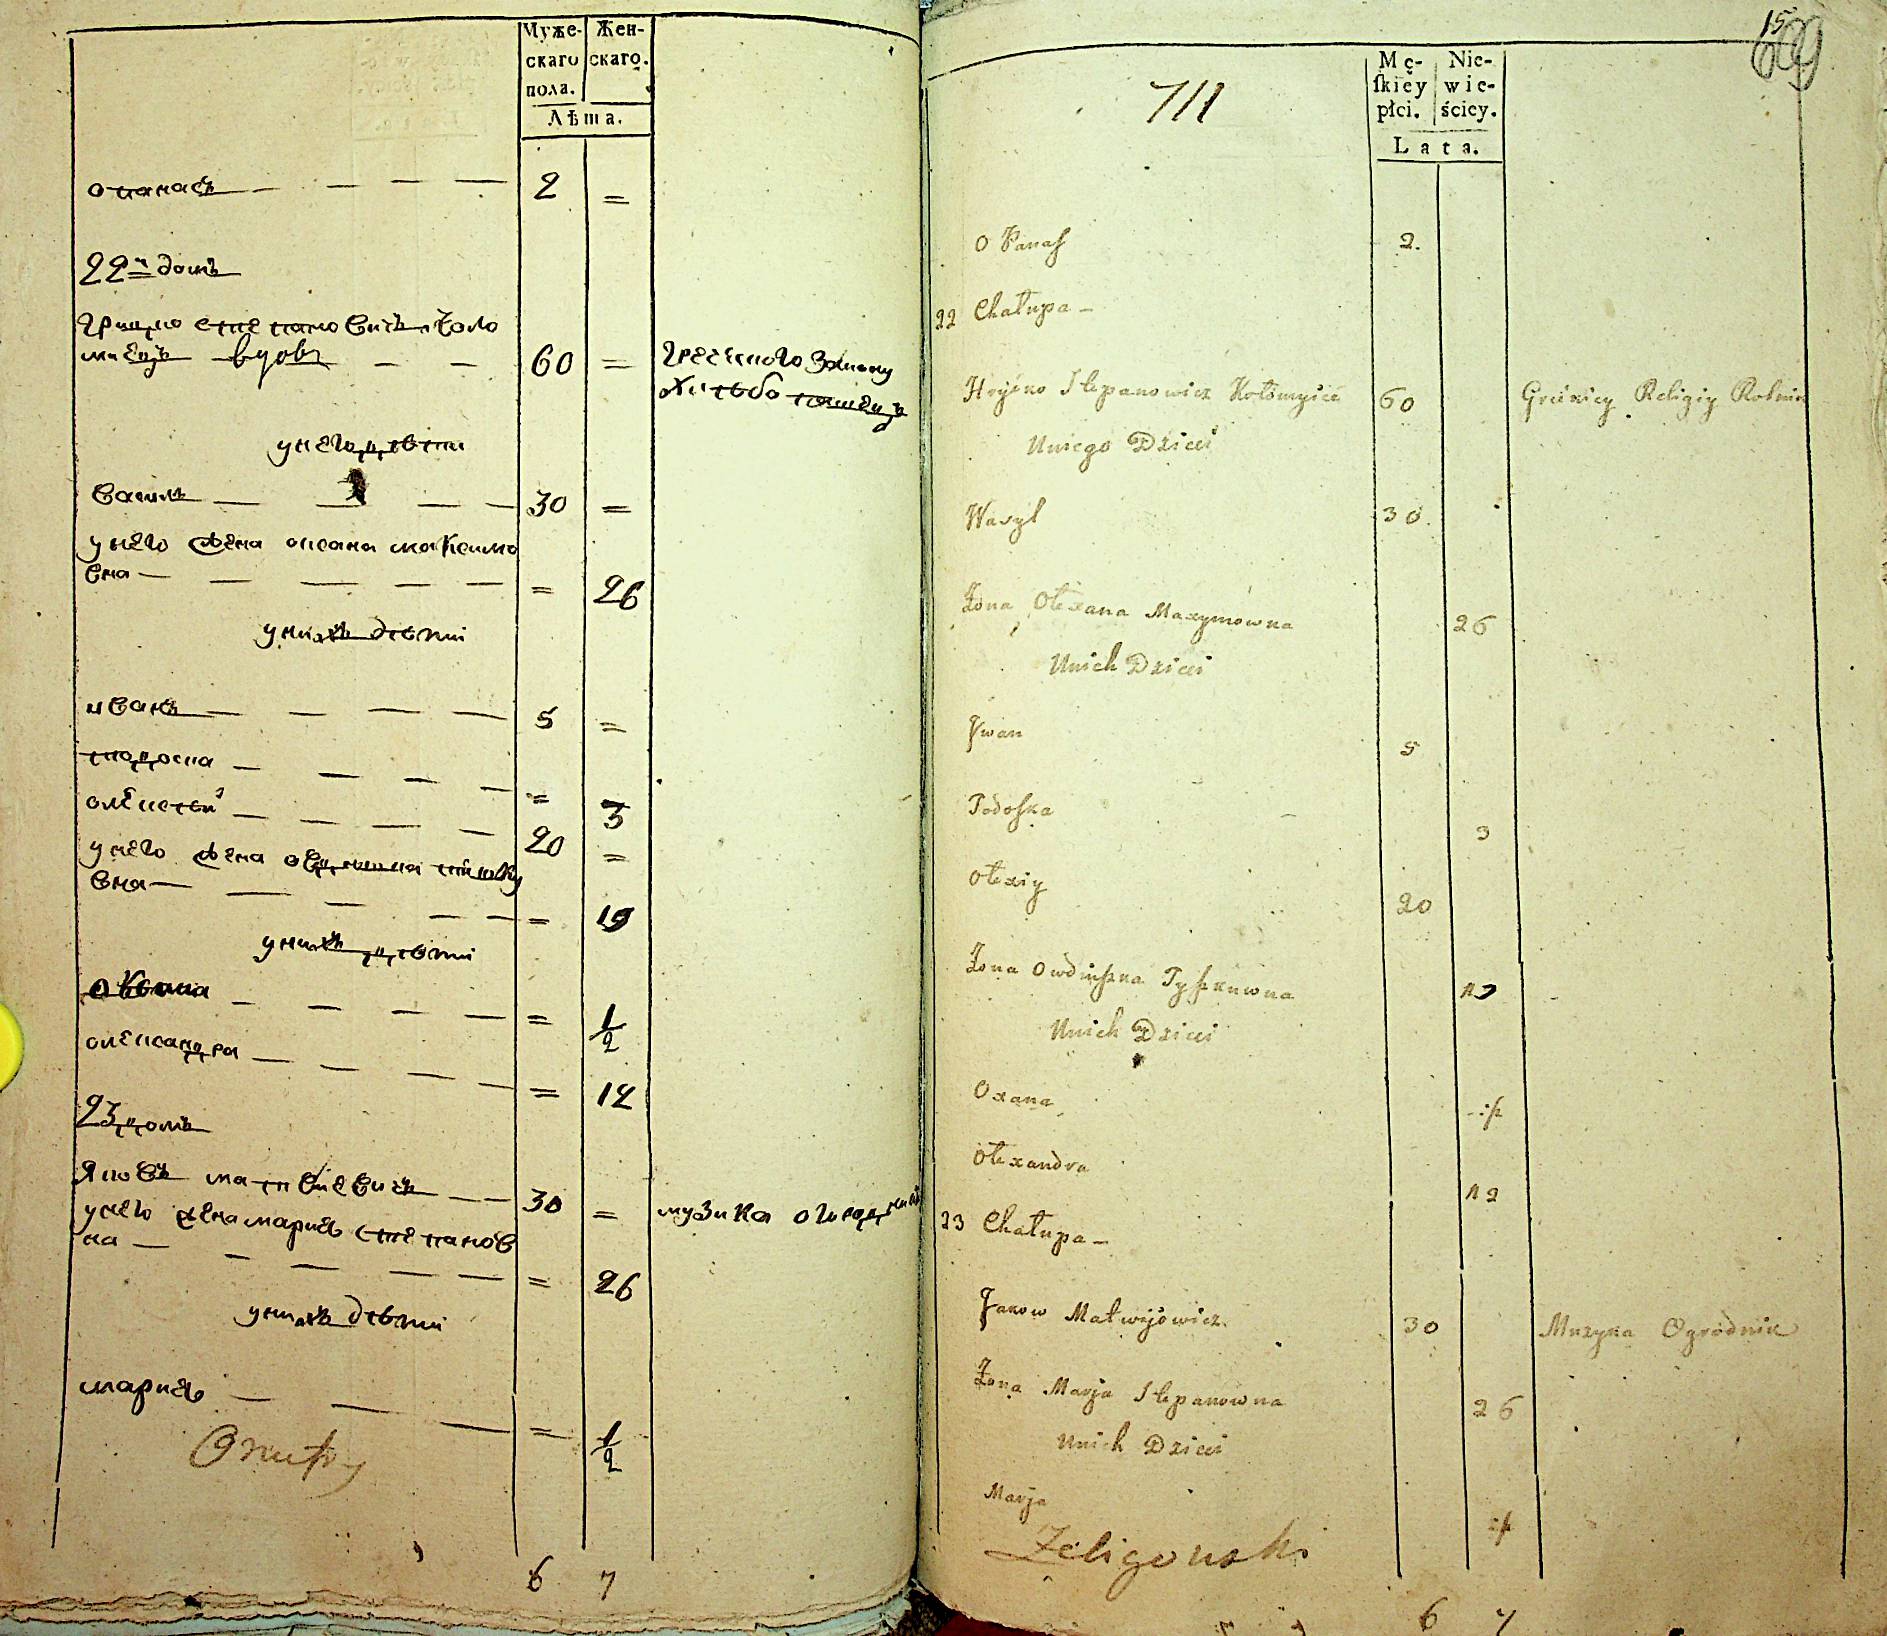 Муже-
скаго
пола.
Жен-
скаго.
Лѣта.
опанасъ 2 =
22й домъ
грицко степановичъ коло
миецъ вдовъ 60 = греческого закону
хлѣбопашецъ
у него дѣти
василь 30 =
у него жена оксана максимо
вна = 26
у нихъ дѣти
иванъ 5 =
тодоска = 3
олексѣй 20 =
у него жена овдюшка тишку
вна = 19
у нихъ дѣти
оксана = 1/2
олександра = 12
23 домъ
Яковъ матвіевичъ 30 = музика огородникъ
у него жена мария степанов
на = 26
у нихъ дѣти
мария = 1/2
6 7
15
609
711
Mę-
ſkiéy
płci.
Nie-
wie-
ścicy.
Lata.
O Panaſ 2.
22 Chałupa –
Hryćko Stepanowicz Kołomyiec 60 Greckiey Religiy Rolnik
Uniego Dzieci
Wasyl 30.
Żona Olexana Maxymowna 26
Unich Dzieci
Jwan 5
Todoſka 3
Olexiy 20
Żona Owdiuſzka Tyſzkuwna 19
Unich Dzieci
Oxana ½
Olexandra 12
23 Chałupa –
Jakow Matwijowicz. 30 Muzyka Ogrodnik
Żona Marja Stepanowna 26
Unich Dzieci
Marja ½
Żeligowski
6 7